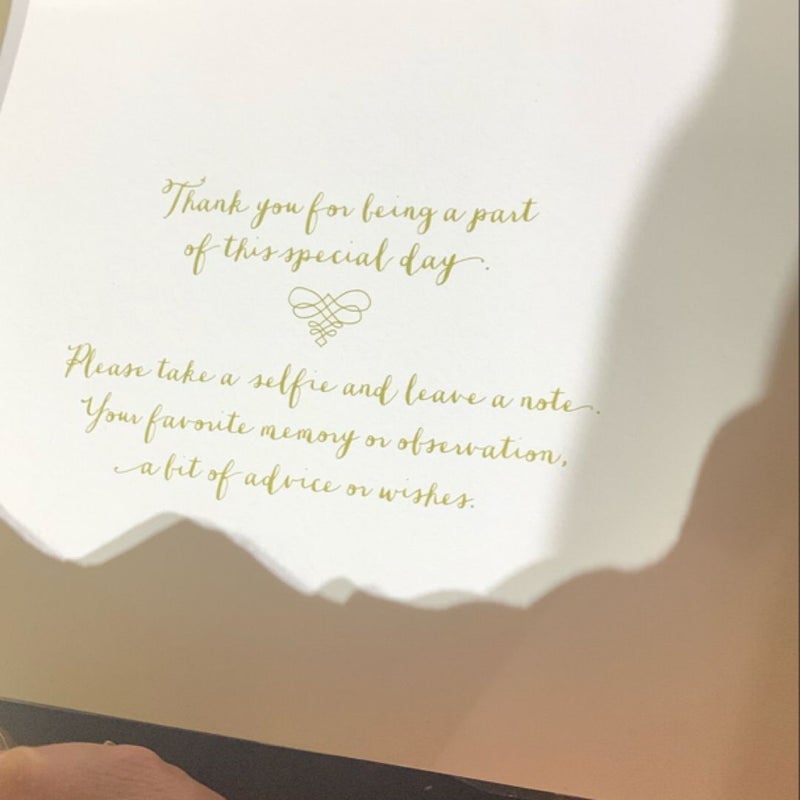 Thank you for being a part
of this special day.
Please take a selfie and leave a note.
Your favorite memory or observation,
a bit of advice or wishes.